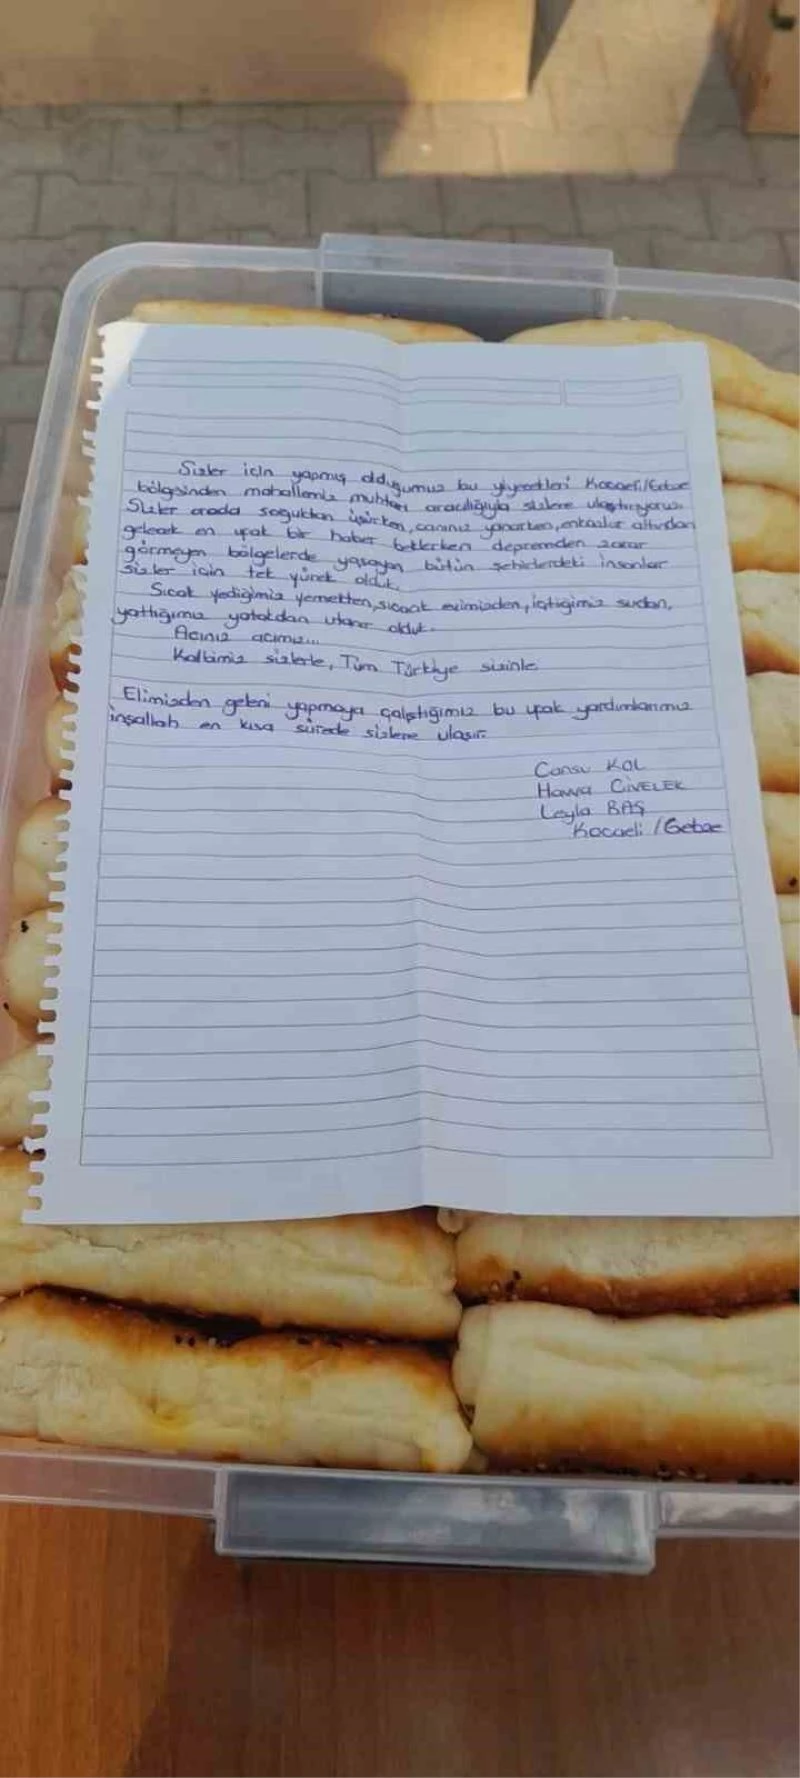 Sizler için yapmış olduğumuz bu yiyecekleri Kocaeli/Gebze
bölgesinden mahallemiz muhtarı aracılığıyla sizlere ulaştırıyoruz.
Sizler orada soğuktan üşürken, canınız yanarken, enkazlar altından
gelecek en ufak bir haber beklerken depremden zarar
görmeyen bölgelerde yaşayan bütün şehirlerdeki insanlar
sizler için tek yürek olduk.
Sıcak yediğimiz yemekten, sıcak evimizden, içtiğimiz sudan,
yattığımız yataktan utanır olduk.
Acınız acımız...
Kalbimiz sizlerle, Tüm Türkiye sizinle
Elimizden geleni yapmaya çalıştığımız bu ufak yardımlarımız
inşallah en kısa sürede sizlere ulaşır.
Cansu KOL
Havva CİVELEK
Leyla BAŞ
Kocaeli /Gebze